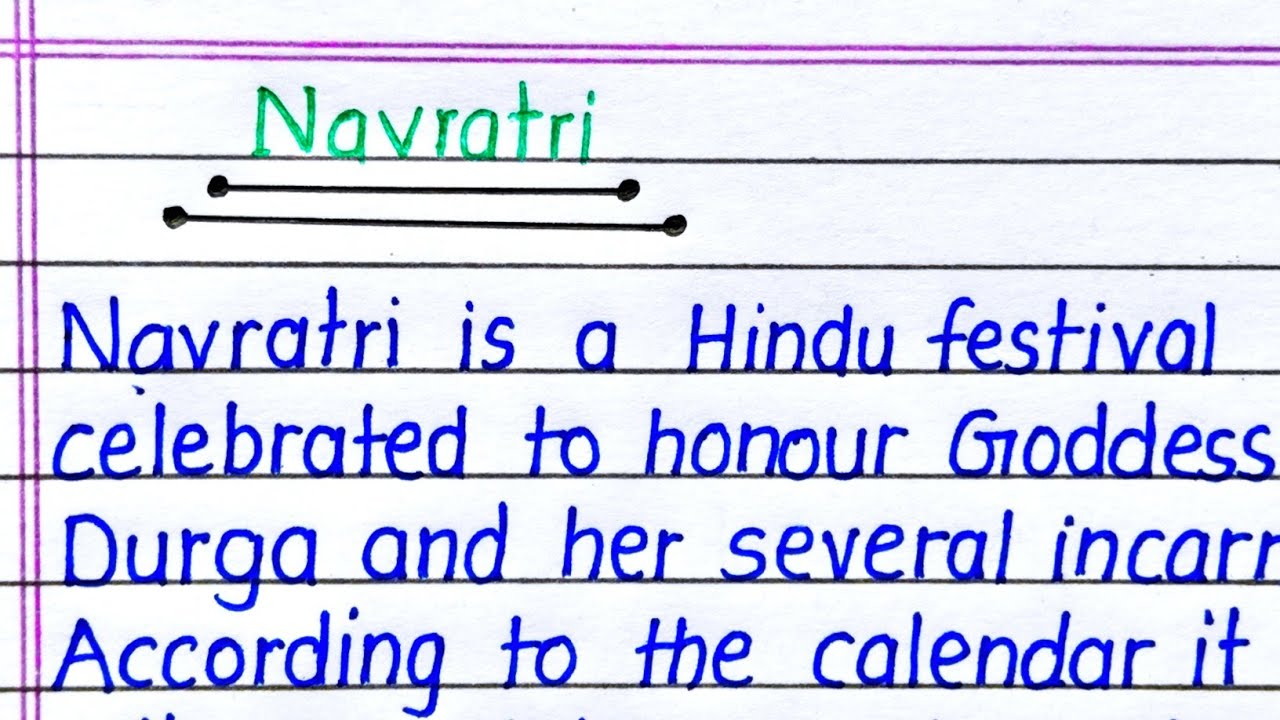 Navratri
Navratri is a Hindu festival
celebrated to honour Goddess
Durga and her several
According to the calendar it